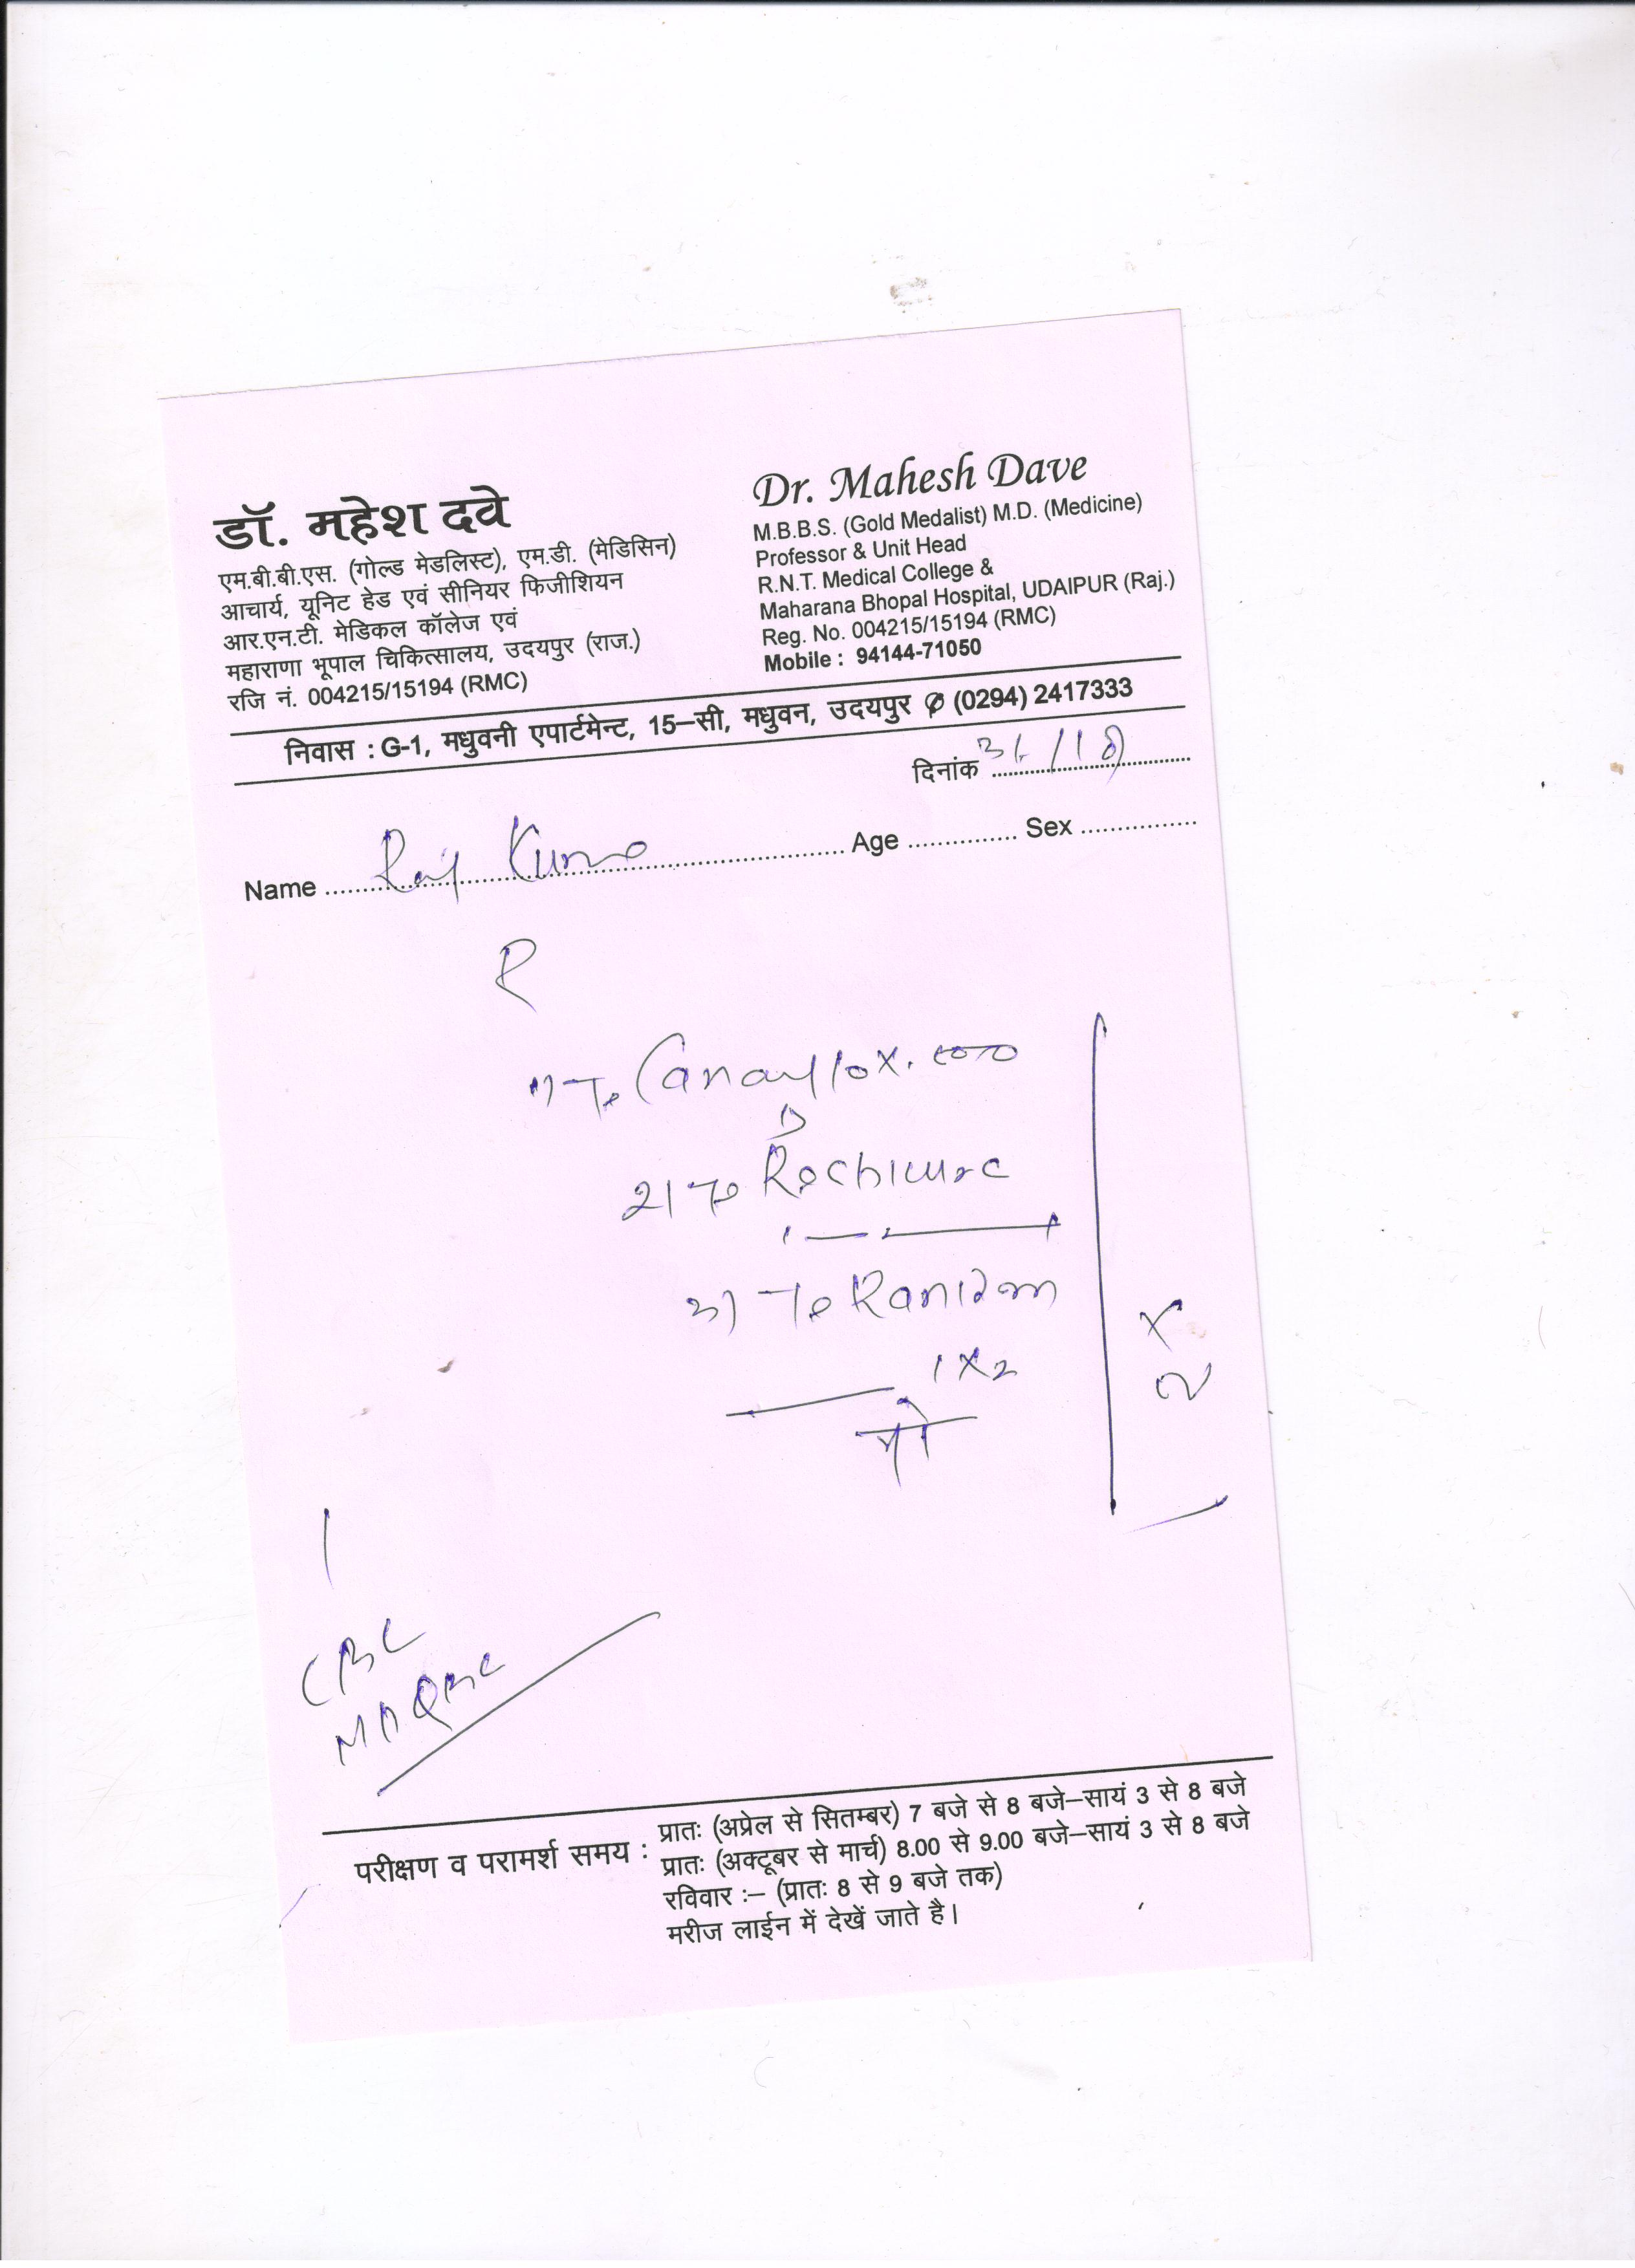 डॉ. महेश दवे
एम.बी.बी.एस. (गोल्ड मेडलिस्ट), एम.डी. (मेडिसिन)
आचार्य, यूनिट हेड एवं सीनियर फिजीशियन
आर.एन.टी. मेडिकल कॉलेज एवं
महाराणा भूपाल चिकित्सालय, उदयपुर (राज.)
रजि नं. 004215/15194 (RMC)
Dr. Mahesh Dave
M.B.B.S. (Gold Medalist) M.D. (Medicine)
Professor & Unit Head
R.N.T. Medical College &
Maharana Bhopal Hospital, UDAIPUR (Raj.)
Reg. No. 004215/15194 (RMC)
Mobile : 94144-71050
निवास : G-1, मधुवनी एपार्टमेन्ट, 15–सी, मधुवन, उदयपुर ✆ (0294) 2417333
दिनांक
Name Raj Age Sex
R
1)
2)
3)
1 x 2
x
CBC
परीक्षण व परामर्श समय : प्रातः (अप्रेल से सितम्बर) 7 बजे से 8 बजे–सायं 3 से 8 बजे
प्रातः (अक्टूबर से मार्च) 8.00 से 9.00 बजे–सायं 3 से 8 बजे
रविवार :– (प्रातः 8 से 9 बजे तक)
मरीज लाईन में देखें जाते है।